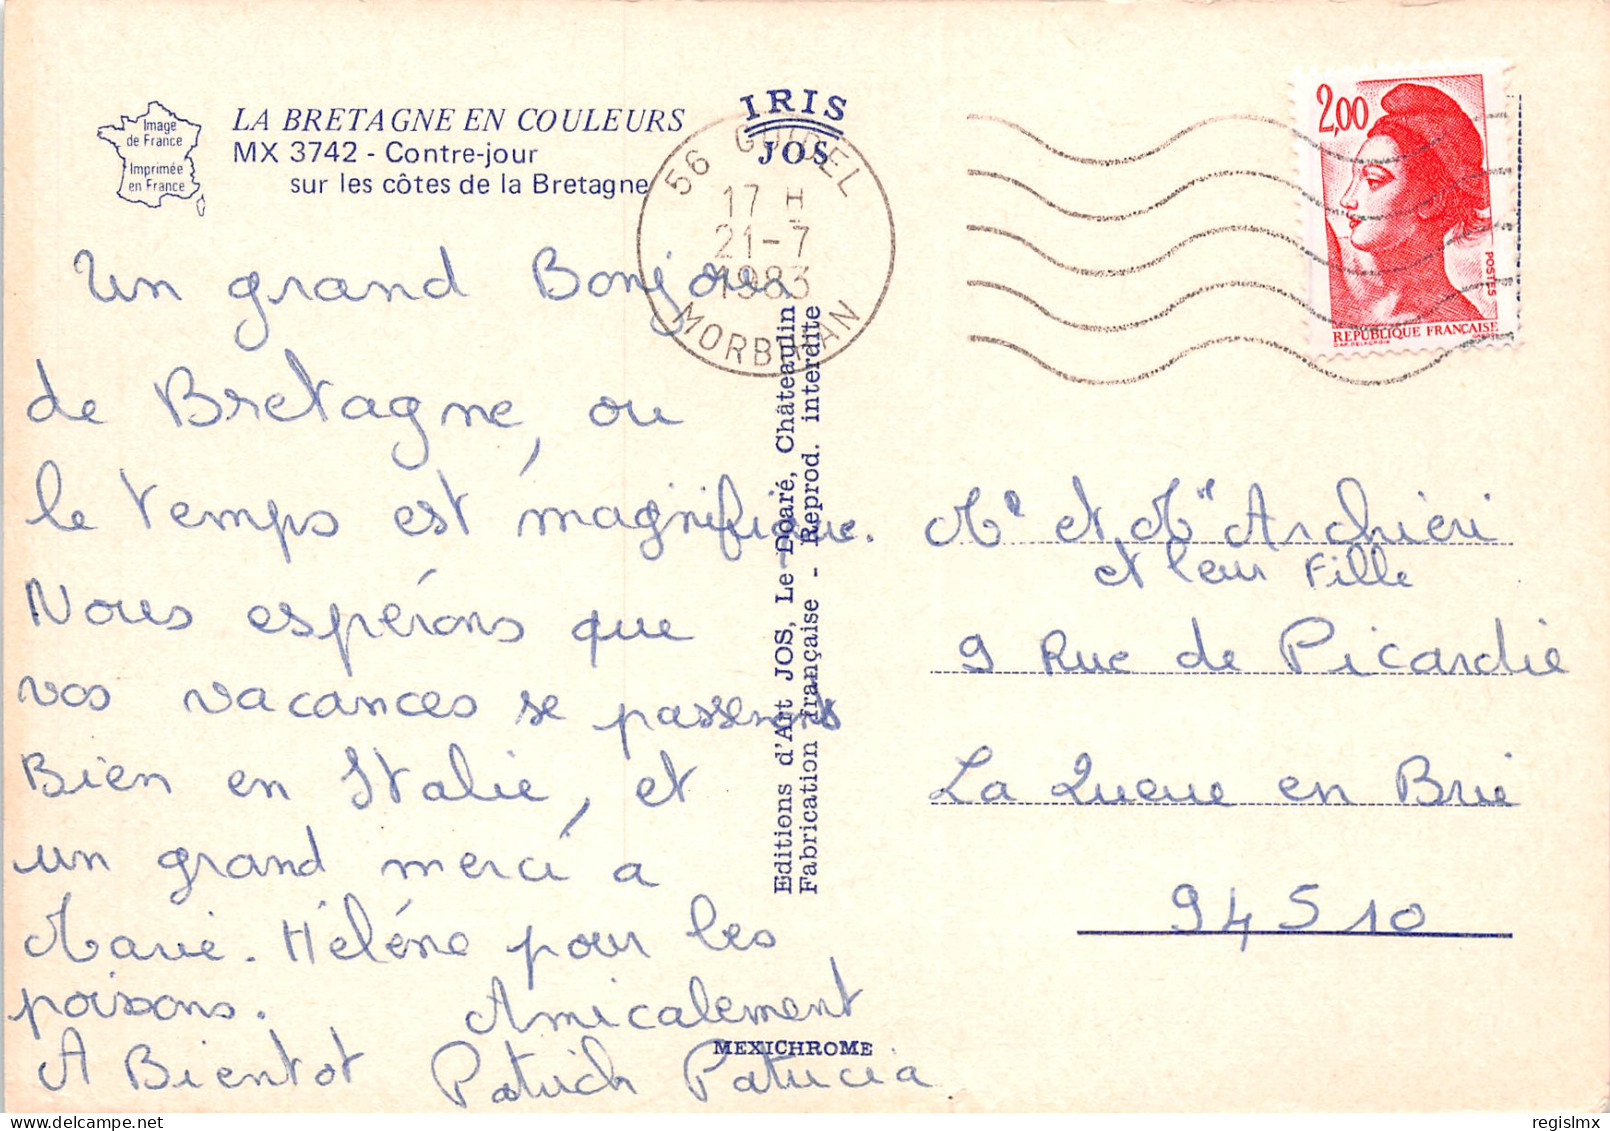 Image
de France
Imprimée
en France
LA BRETAGNE EN COULEURS
MX 3742 - Contre-jour
sur les côtes de la Bretagne
IRIS
JOS
56 GUIDEL
17 H
21-7
1983
MORBIHAN
2,00
POSTES
REPUBLIQUE FRANÇAISE
Un grand Bonjour
de Bretagne, ou
le temps est magnifique.
Nous espérons que
vos vacances se passerons
Bien en Italie, et
un grand merci a
Marie-Hélène pour les
poissons. Amicalement
A Bientot Patrick Patricia
Editions d'Art JOS, Le Doaré, Châteaulin
Fabrication française - Reprod. interdite
MEXICHROME
Mr et Mm Archieri
et leur Fille
9 Rue de Picardie
La Queue en Brie
94510
regislmx